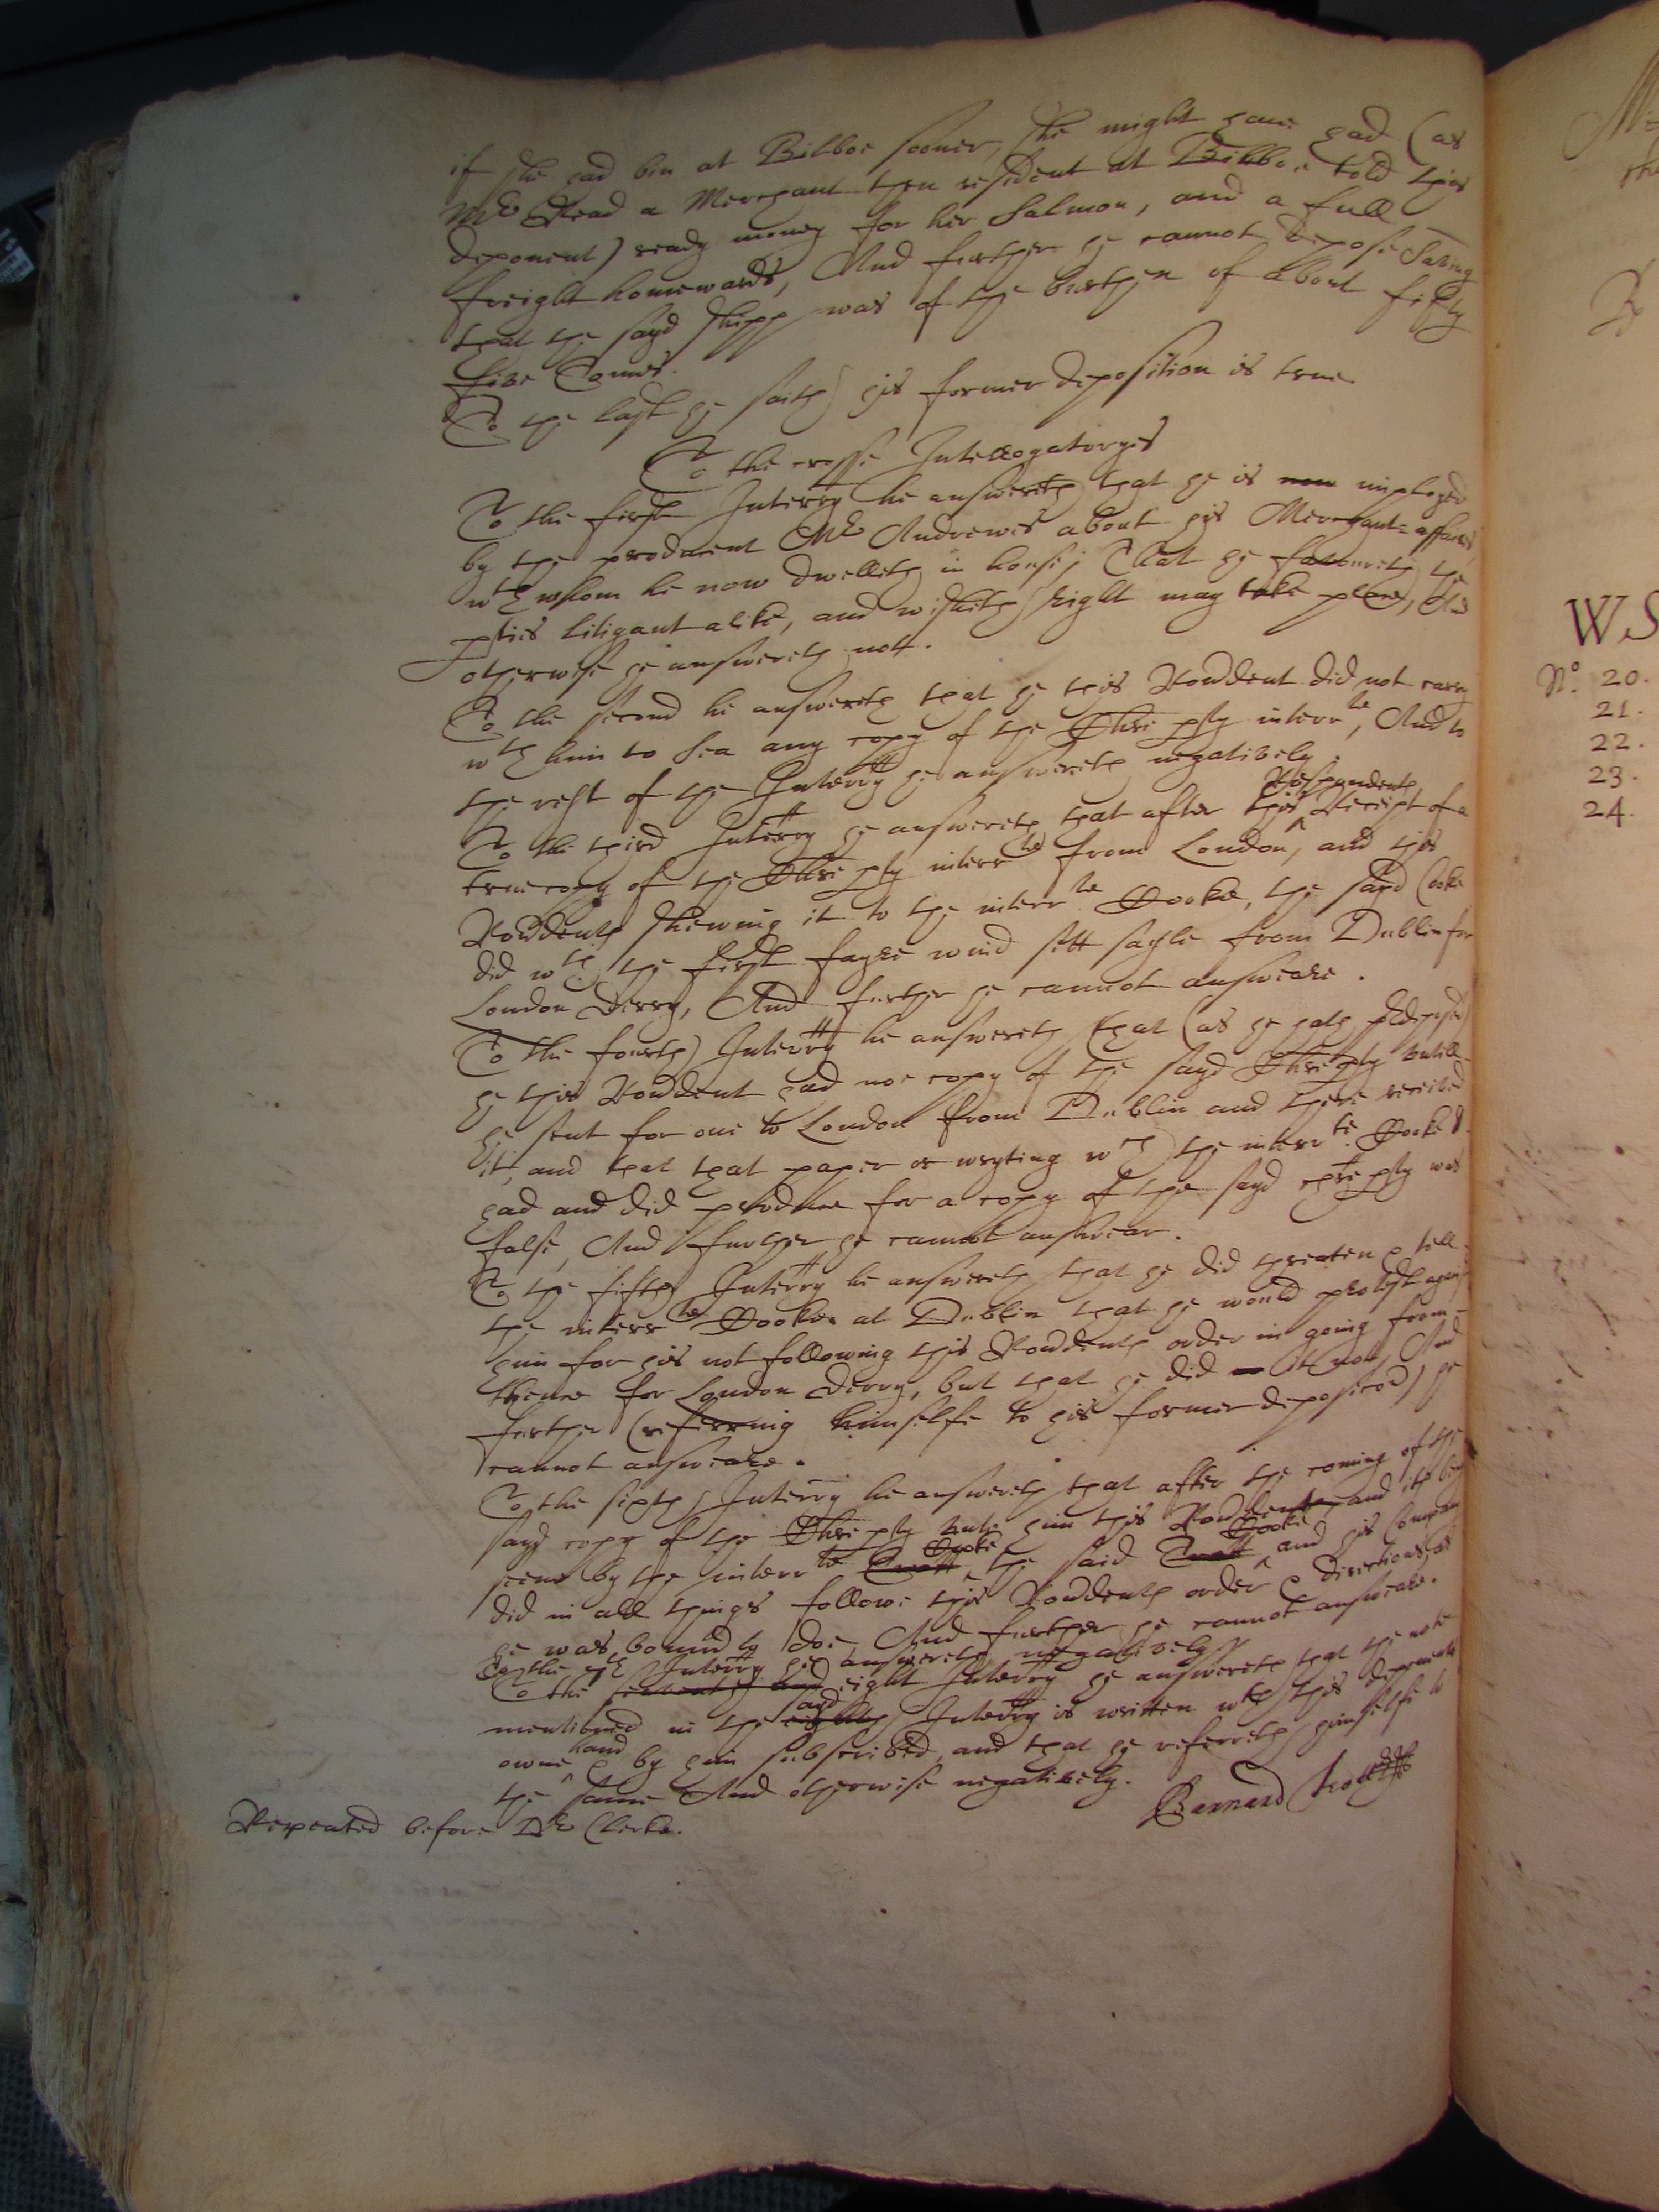 if shee had bin at Bilboe sooner, she might have had (as
Mr Read a Merchant then resident at Bilboe told this
deponent) ready money for her Salmon, and a full
freight homewards, And further he cannot depose Saving
that the sayd shipp was of the burthen of about fifty
five Tonnes.
To the last he saith his former deposition is true.
To the crosse Interrogatoryes
To the first Interrry he answereth that he is now imployed
by the producent Mr Andrewes about his Merchant-affaires
wth whom he now dwelleth in house, That he favoureth the
pties litigant alike, and wisheth right may take place, And
otherwise he answereth nott.
To the second he answereth that he this Rondent did not carry
wth him to Sea any copy of the Chre pty interrte, And to
the rest of the Interry he answereth negatively.
To the third Interry he answereth that after this Respondents receipt of a
true copy of the Chre pty interrted from London, and this
Rondents shewing it to the interrte Cooke, the sayd Cooke
did wth the first fayre wind sett sayle from Dublin for
London Derry, And further he cannot answeare.
To the fourth Interry he answereth that (as he hath predeposed)
he this Rondent had noe copy of the sayd Chre pty untill
he sent for one to London from Dublin and there received
it, and that that paper or wryting wch the interrte Cooke
had and did produce for a copy of the sayd chre pty was
false, And further he cannot answear.
To the fifth Interry he answereth that he did threaten & tell
the interrte Cooke at Dublin that he would protest against
him for his not following this Rondents order in going from
thence for London Derry, but that he did it not, And
further (referring himselfe to his former deposicon) he
cannot answeare.
To the sixth Interry he answereth that after the coming of the
sayd copy of the Chre pty unto him this Rondent, and its being
seene by the interrte Cooke the said Cooke and his Company
did in all things follow this Rondents order & directions, as
he was bound to doe, And further he cannot answeare.
To the 7th Interry hee answereth negatively
To the seaventh and eight Interry he answereth that the note
mentioned in the eighth sayd Interry is written wth this deponents
owne hand & by him subscribed, and that he referreth himselfe to
the same And otherwise negatively.
Barnard
Repeated before Dr Clerke.
WS
No. 20.
21.
22.
23.
24.